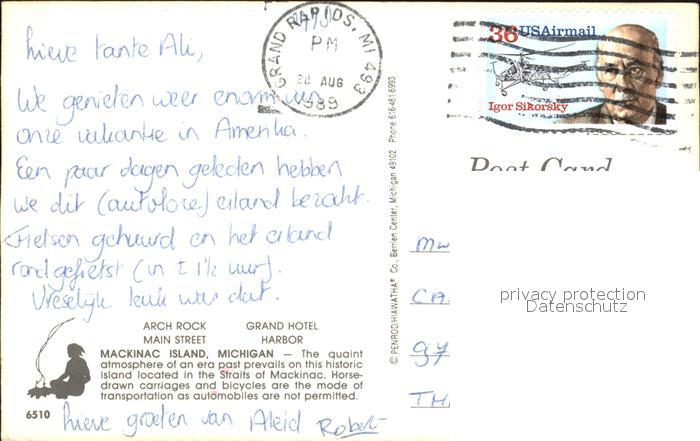 lieve tante Ali,
We genieten weer enorm van
onze vakantie in Amerika.
Een paar dagen geleden hebben
we dit (autoloze) eiland bezocht.
Fietsen gehuurd en het eiland
rondgefietst (in ± 1½ uur).
Vreselijk leuk was dat.
ARCH ROCK GRAND HOTEL
MAIN STREET HARBOR
MACKINAC ISLAND, MICHIGAN — The quaint
atmosphere of an era past prevails on this historic
island located in the Straits of Mackinac. Horse-
drawn carriages and bicycles are the mode of
transportation as automobiles are not permitted.
6510
lieve groeten van Aleid Robert
GRAND RAPIDS, MI 493
PM
28 AUG
1989
© PENROD/HIAWATHA® Co., Berrien Center, Michigan 49102 Phone 616-461-6993
36 USAirmail
Igor Sikorsky
Post Card
MW
CA.
97
TH
privacy protection
Datenschutz